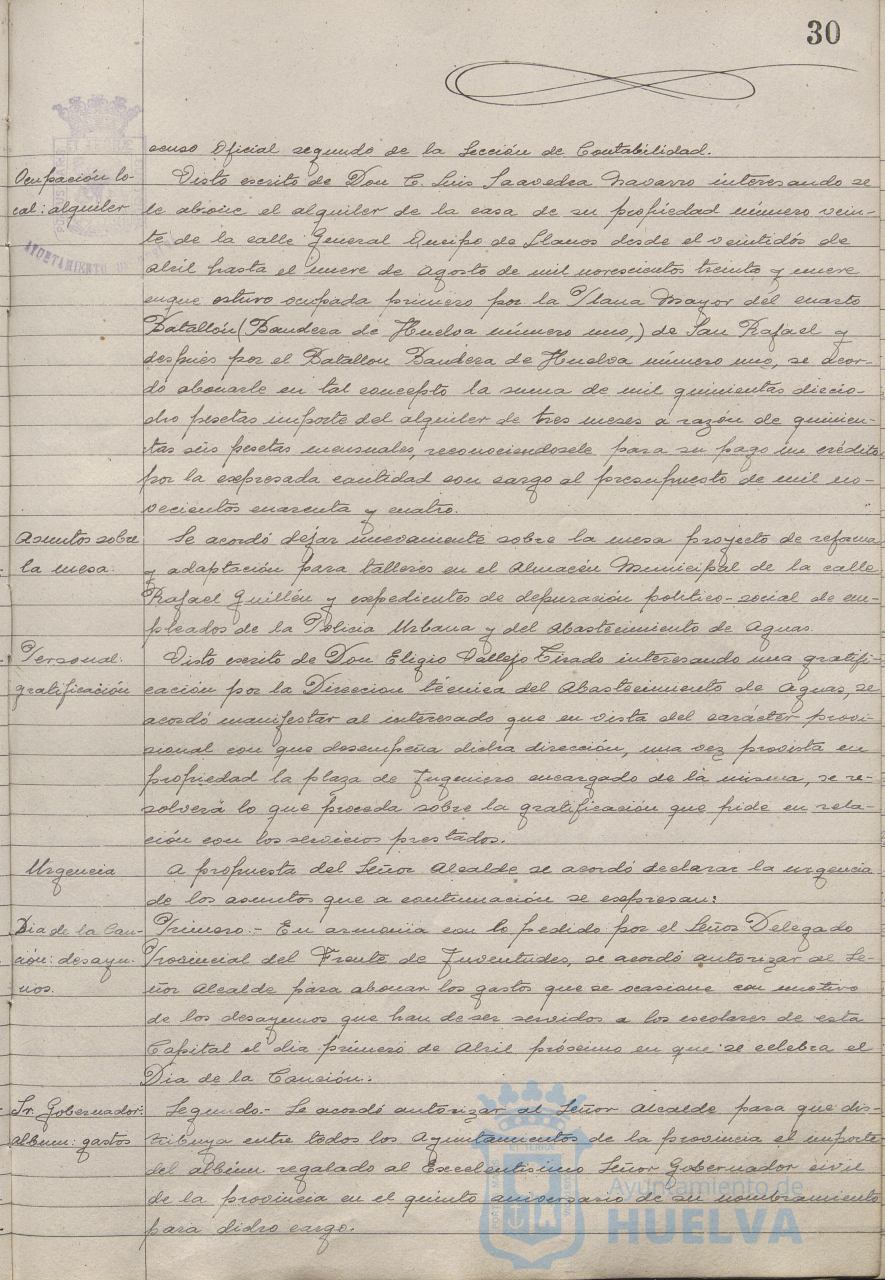 30
censo Oficial segundo de la Sección de Contabilidad.
Ocupación lo-
cal: alquiler
Visto escrito de Don C. Luis Saavedra Navarro interesando se
le abone el alquiler de la casa de su propiedad número vein-
te de la calle General Queipo de Llanos desde el veintidós de
Abril hasta el nueve de Agosto de mil novescientos treinta y nueve
enque estuvo ocupada primero por la Plana Mayor del cuarto
Batallón (Bandera de Huelva número uno,) de San Rafael y
después por el Batallon Bandera de Huelva número uno, se acor-
do abonarle en tal concepto la suma de mil quinientas diecio-
cho pesetas importe del alquiler de tres meses a razón de quinien-
tas seis pesetas mensuales, reconociendosele para su pago un crédito
por la expresada cantidad con cargo al presupuesto de mil no-
vecientos cuarenta y cuatro.
Asuntos sobre
la mesa.
Se acordó dejar nuevamente sobre la mesa proyecto de reforma
y adaptación para talleres en el Almacén Municipal de la calle
Rafael Guillén y expedientes de depuración politico-social de em-
pleados de la Policia Urbana y del Abastecimiento de Aguas.
Personal:
gratificación
Visto escrito de Don Eligio Vallejo Tirado interesando una gratifi-
cación por la Direccion técnica del Abastecimiento de Aguas, se
acordó manifestar al interesado que en vista del carácter provi-
sional con que desempeña dicha dirección, una vez provista en
propiedad la plaza de Ingeniero encargado de la misma, se re-
solverá lo que proceda sobre la gratificación que pide en rela-
ción con los servicios prestados.
Urgencia
A propuesta del Señor Alcalde se acordó declarar la urgencia
de los asuntos que a continuación se expresan:
Dia de la Can-
ción: desayu-
nos.
Primero.- En armonia con lo pedido por el Señor Delegado
Provincial del Frente de Juventudes, se acordó autorizar al Se-
ñor Alcalde para abonar los gastos que se ocasione con motivo
de los desayunos que han de ser servidos a los escolares de esta
Capital el dia primero de Abril próximo en que se celebra el
Dia de la Canción.
Sr. Gobernador:
album: gastos
Segundo.- Se acordó autorizar al Señor Alcalde para que dis-
tribuya entre todos los Ayuntamientos de la provincia el importe
del albúm regalado al Excelentisimo Señor Gobernador civil
de la provincia en el quinto aniversario de su nombramiento
para dicho cargo.
AYUNTAMIENTO DE
Ayuntamiento de
HUELVA